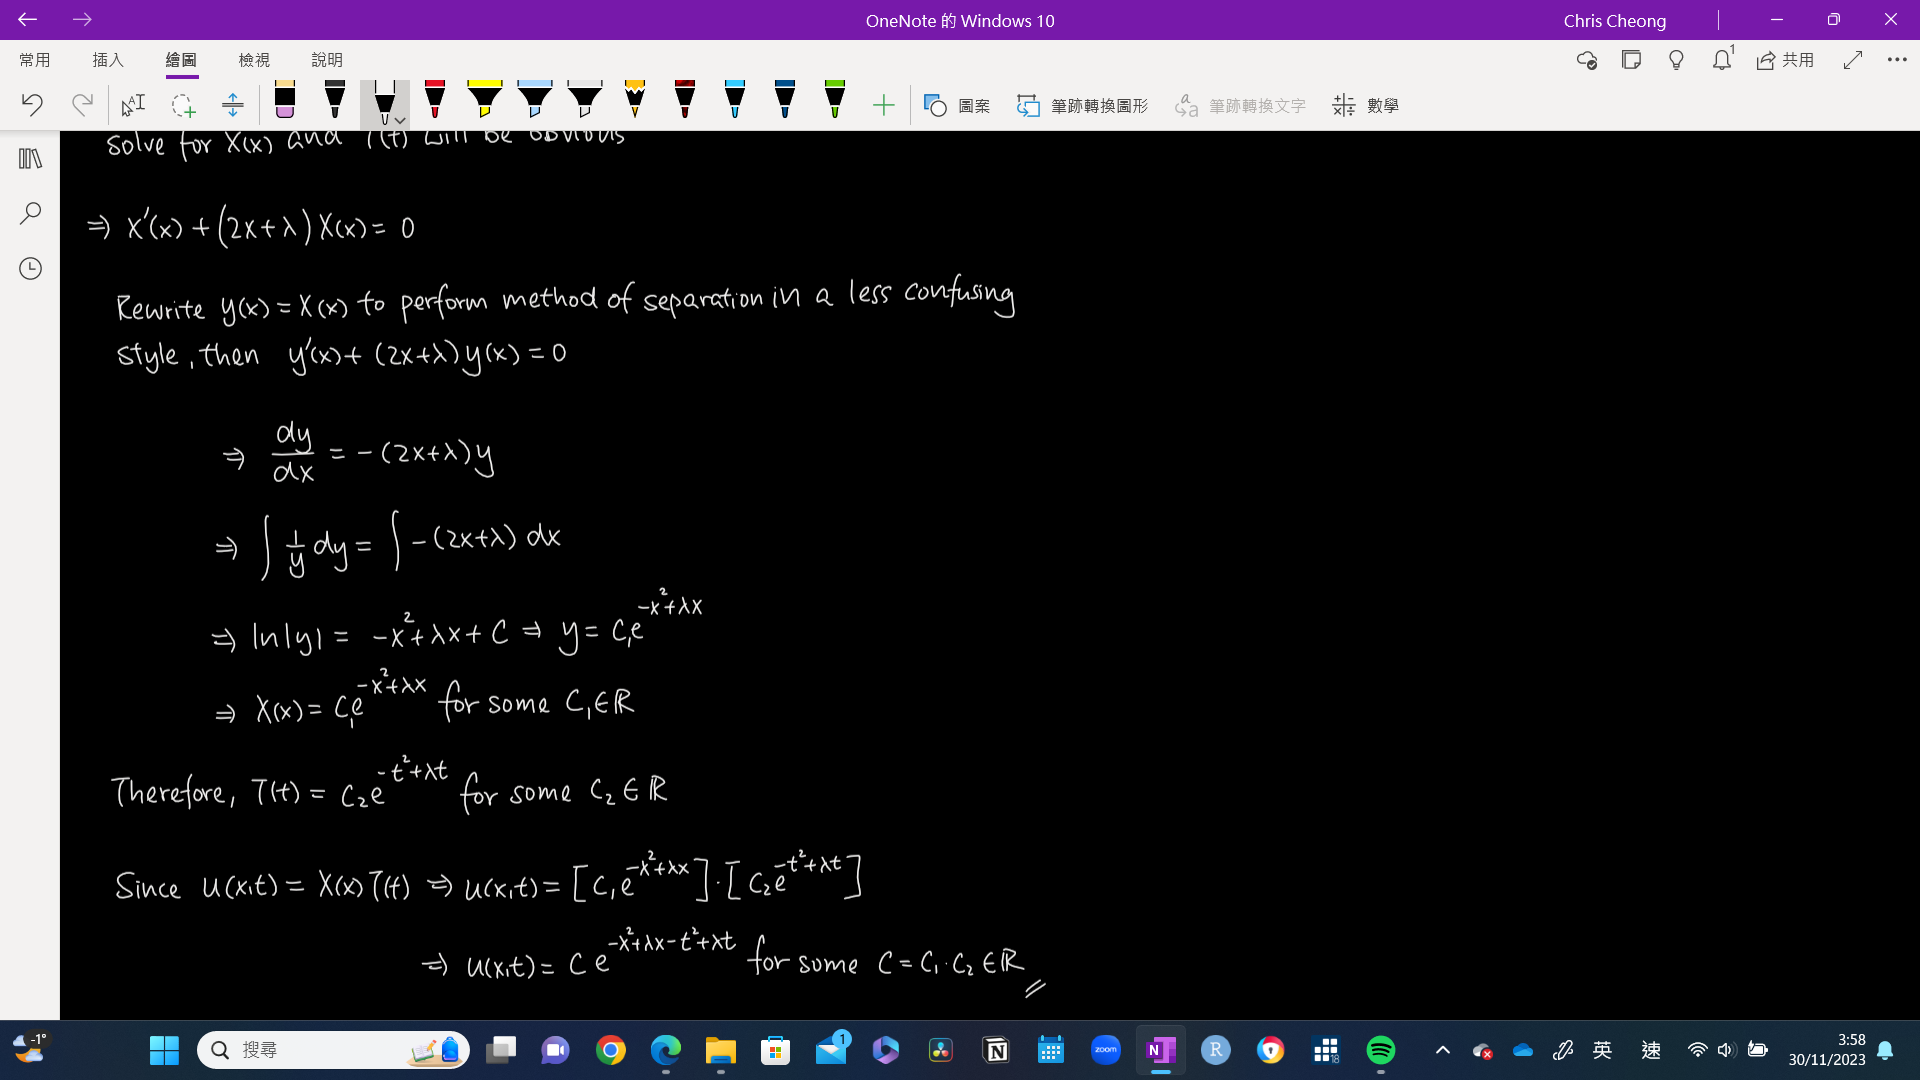 OneNote 的 Windows 10
Chris Cheong
常用 插入 繪圖 檢視 說明
1
共用
圖案 筆跡轉換圖形 筆跡轉換文字 數學
Solve for X(x) and T(t) will be obvious
⇒ X'(x) + (2x+λ) X(x) = 0
Rewrite y(x) = X(x) to perform method of separation in a less confusing
style, then y'(x) + (2x+λ) y(x) = 0
⇒ dy/dx = -(2x+λ)y
⇒ ∫ 1/y dy = ∫ -(2x+λ) dx
⇒ ln|y| = -x²+λx+C ⇒ y = C₁e^(-x²+λx)
⇒ X(x) = C₁e^(-x²+λx) for some C₁∈ℝ
Therefore, T(t) = C₂e^(-t²+λt) for some C₂∈ℝ
Since u(x,t) = X(x)T(t) ⇒ u(x,t) = [C₁e^(-x²+λx)]·[C₂e^(-t²+λt)]
⇒ u(x,t) = C e^(-x²+λx-t²+λt) for some C = C₁·C₂∈ℝ
-1°
搜尋
1
zoom
N
R
18
英
速
3:58
30/11/2023